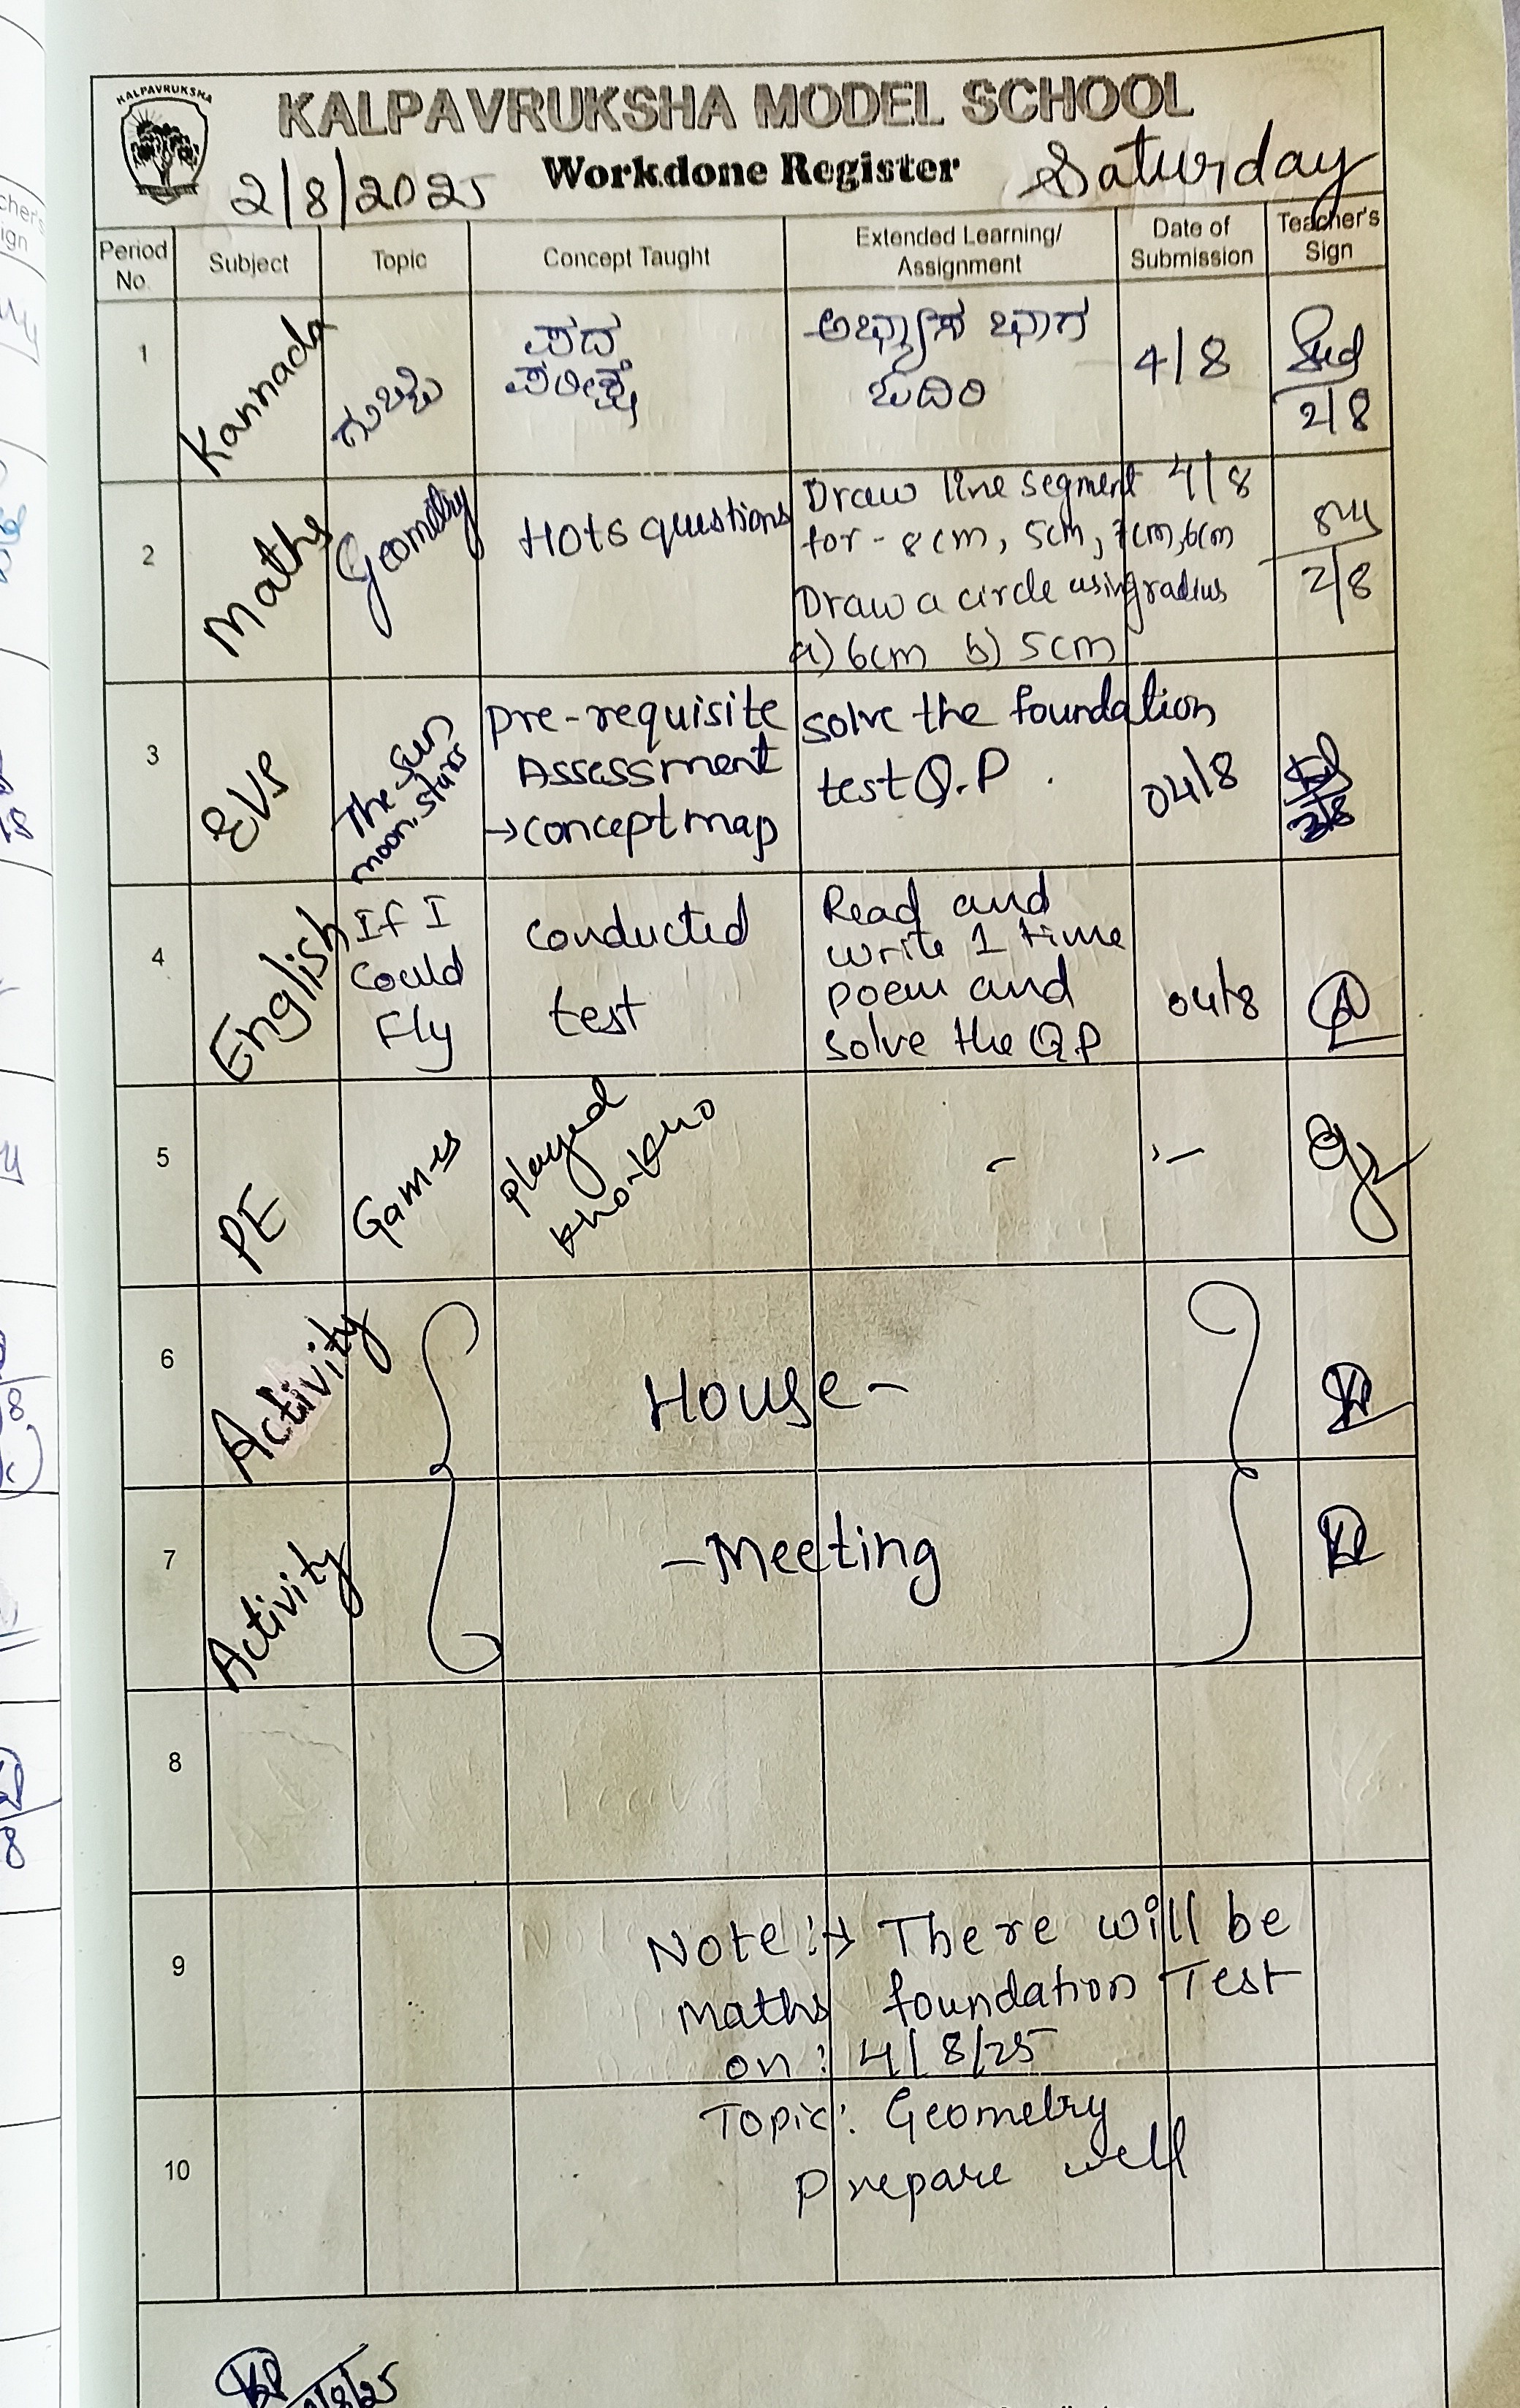 KALPAVRUKSHA
KALPAVRUKSHA MODEL SCHOOL
2/8/2025 Workdone Register Saturday
Period No. Subject Topic Concept Taught Extended Learning/ Assignment Date of Submission Teacher's Sign
1 Kannada ಗುಬ್ಬಿ
ಪದ
ಪರೀಕ್ಷೆ
ಅಭ್ಯಾಸ ಭಾಗ
ಓದಿರಿ
4/8
2/8
2 Maths Geometry HOts questions
Draw line segment 4/8
for - 8cm, 5cm, 7cm, 6cm
Draw a circle using radius
a) 6cm b) 5cm
2/8
3 EVS
The sun,
moon, stars
Pre-requisite
Assessment
→ concept map
solve the foundation
test Q.P.
04/8
4 English
If I
Could
Fly
conducted
test
Read and
write 1 time
poem and
solve the QP
04/8
5 PE Games
played
kho-kho
-
-
6 Activity House-
7 Activity -Meeting
8
9
Note :→ There will be
Maths foundation Test
on : 4/8/25
10
Topic: Geometry
Prepare well